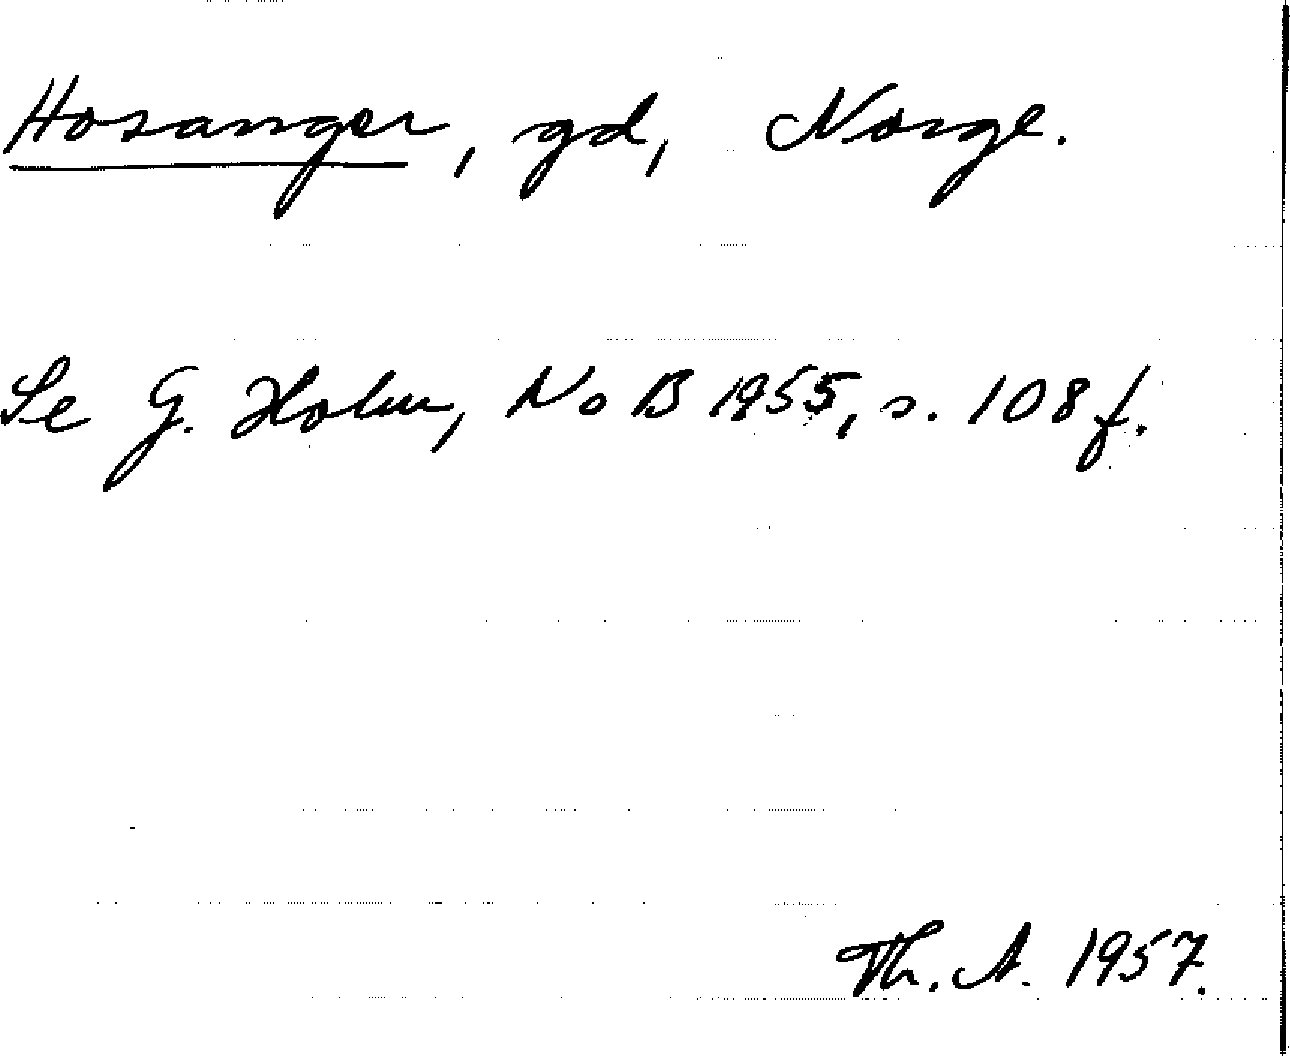 Hosanger, gd, Norge.
Se G. Holm, NoB 1955, s. 108 f.
Th. A. 1957.